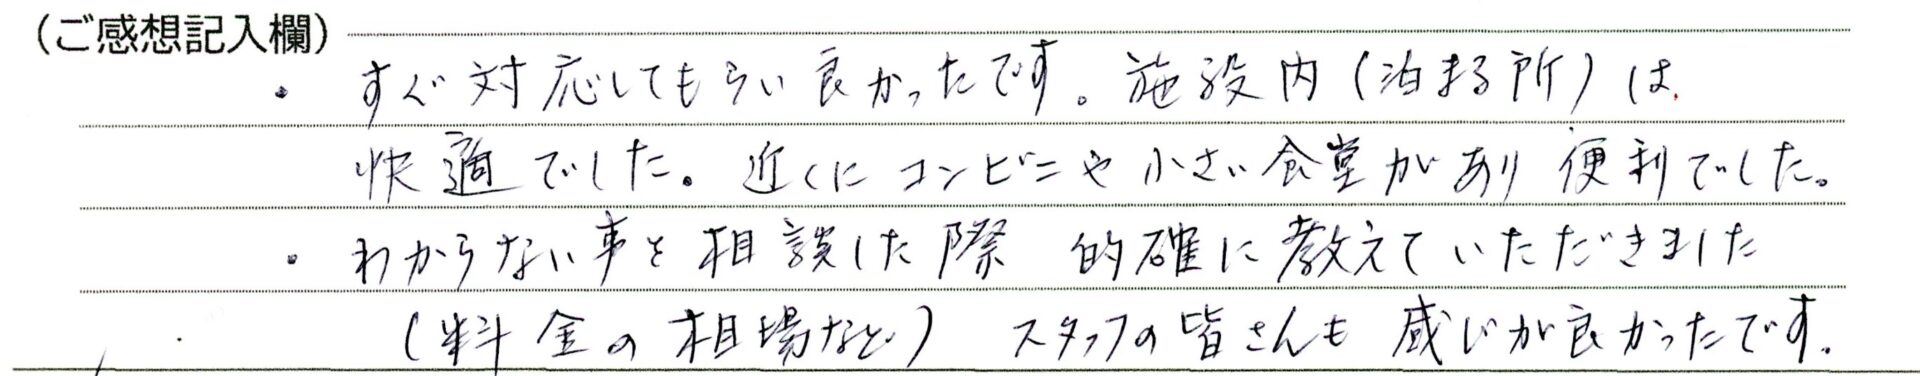 （ご感想記入欄）
・すぐ対応してもらい良かったです。施設内（泊まる所）は
快適でした。近くにコンビニや小さい食堂があり便利でした。
・わからない事を相談した際 的確に教えていただきました
（料金の相場など） スタッフの皆さんも感じが良かったです。